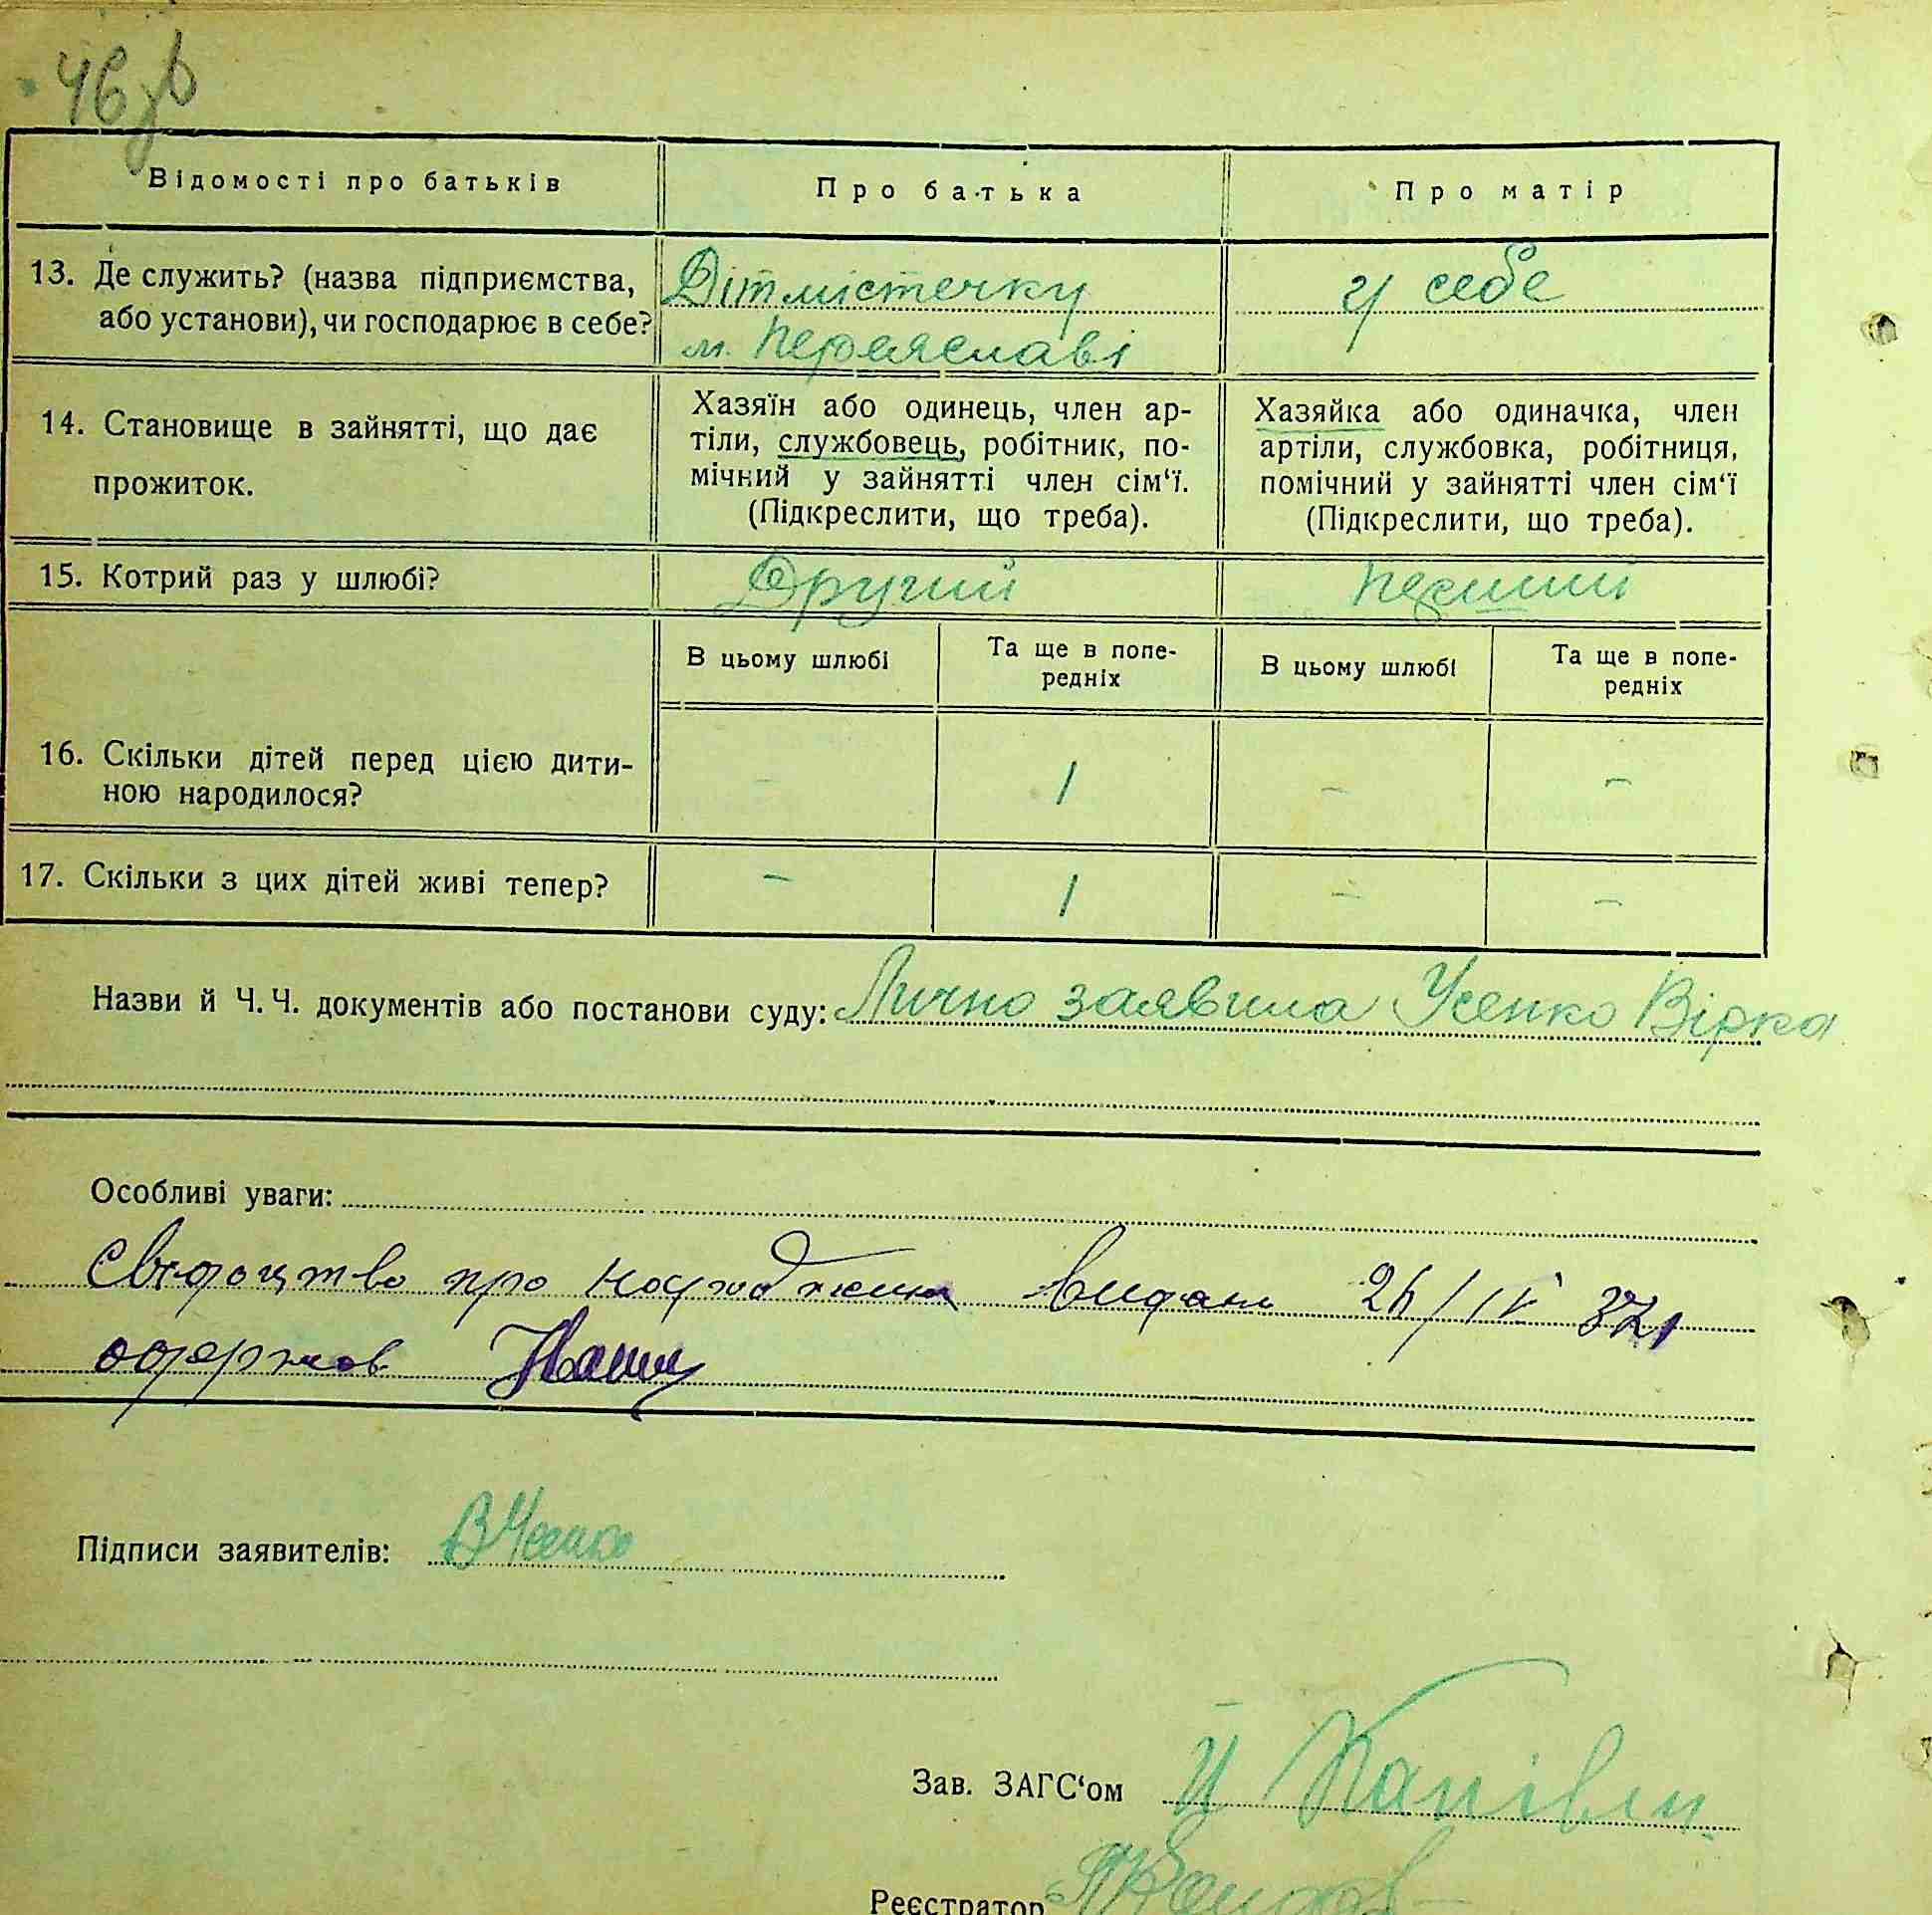 46 зв
Відомості про батьків
Про батька
Про матір
13. Де служить? (назва підприємства,
або установи), чи господарює в себе?
Дітмістечку
м. Переяславі
у себе
14. Становище в зайнятті, що дає
прожиток.
Хазяїн або одинець, член ар-
тіли, службовець, робітник, по-
мічний у зайнятті член сім‘ї.
(Підкреслити, що треба).
Хазяйка або одиначка, член
артіли, службовка, робітниця,
помічний у зайнятті член сім‘ї
(Підкреслити, що треба).
15. Котрий раз у шлюбі?
Другий
перший
В цьому шлюбі
Та ще в попе-
редніх
В цьому шлюбі
Та ще в попе-
редніх
16. Скільки дітей перед цією дити-
ною народилося?
-
1
-
-
17. Скільки з цих дітей живі тепер?
-
1
-
-
Назви й Ч. Ч. документів або постанови суду: Лично заявила Усенко Вірка
Особливі уваги:
Свідоцтво про народження видан 24/IV 37
одержав
Підписи заявителів: ВУсенко
Зав. ЗАГС‘ом
Реєстратор